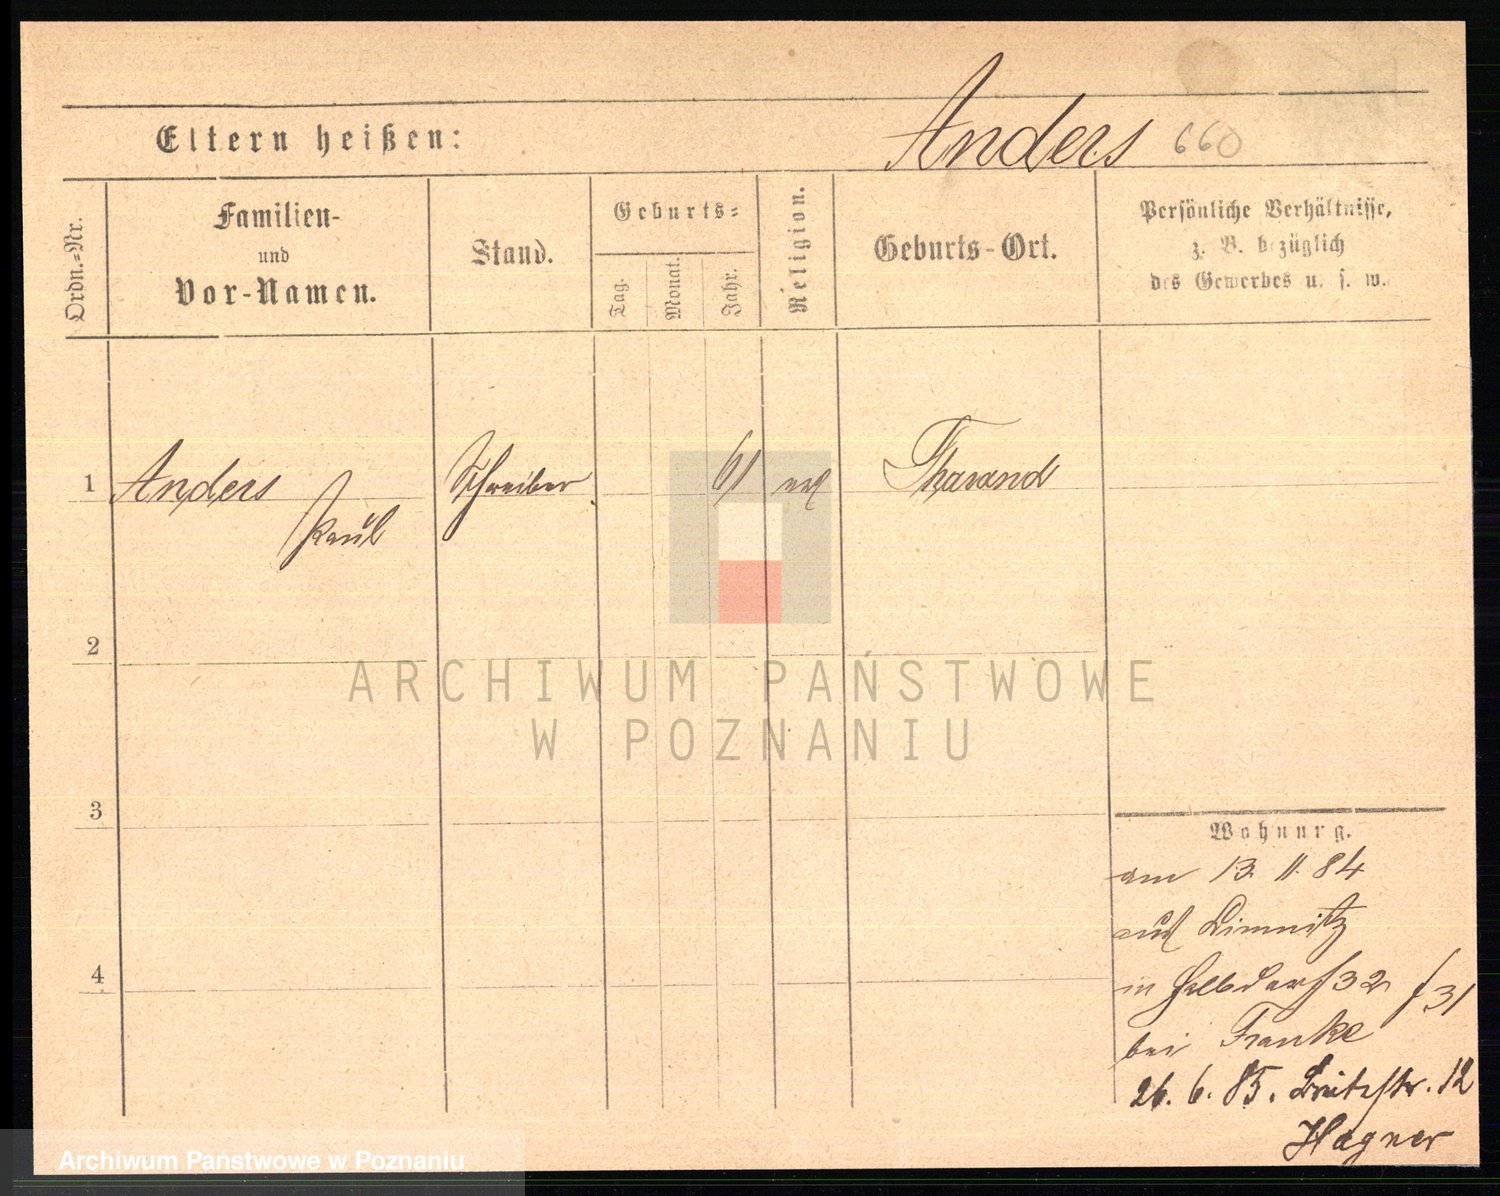 Anders 660
Eltern heißen:
Ordn.-Nr.
Familien-
und
Vor-Namen.
Stand.
Geburts-
Tag.
Monat.
Jahr.
Religion.
Geburts-Ort.
Persönliche Verhältnisse,
z. B. bezüglich
des Gewerbes u. s. w.
1 Anders Schreiber 61 Tharand
Paul
2
ARCHIWUM PAŃSTWOWE
W POZNANIU
3
Wohnung.
am 13. 11. 84
aus
4
in Halbdorf 32 / 31
bei Franke
26. 6. 85. 12
Hagner
Archiwum Państwowe w Poznaniu